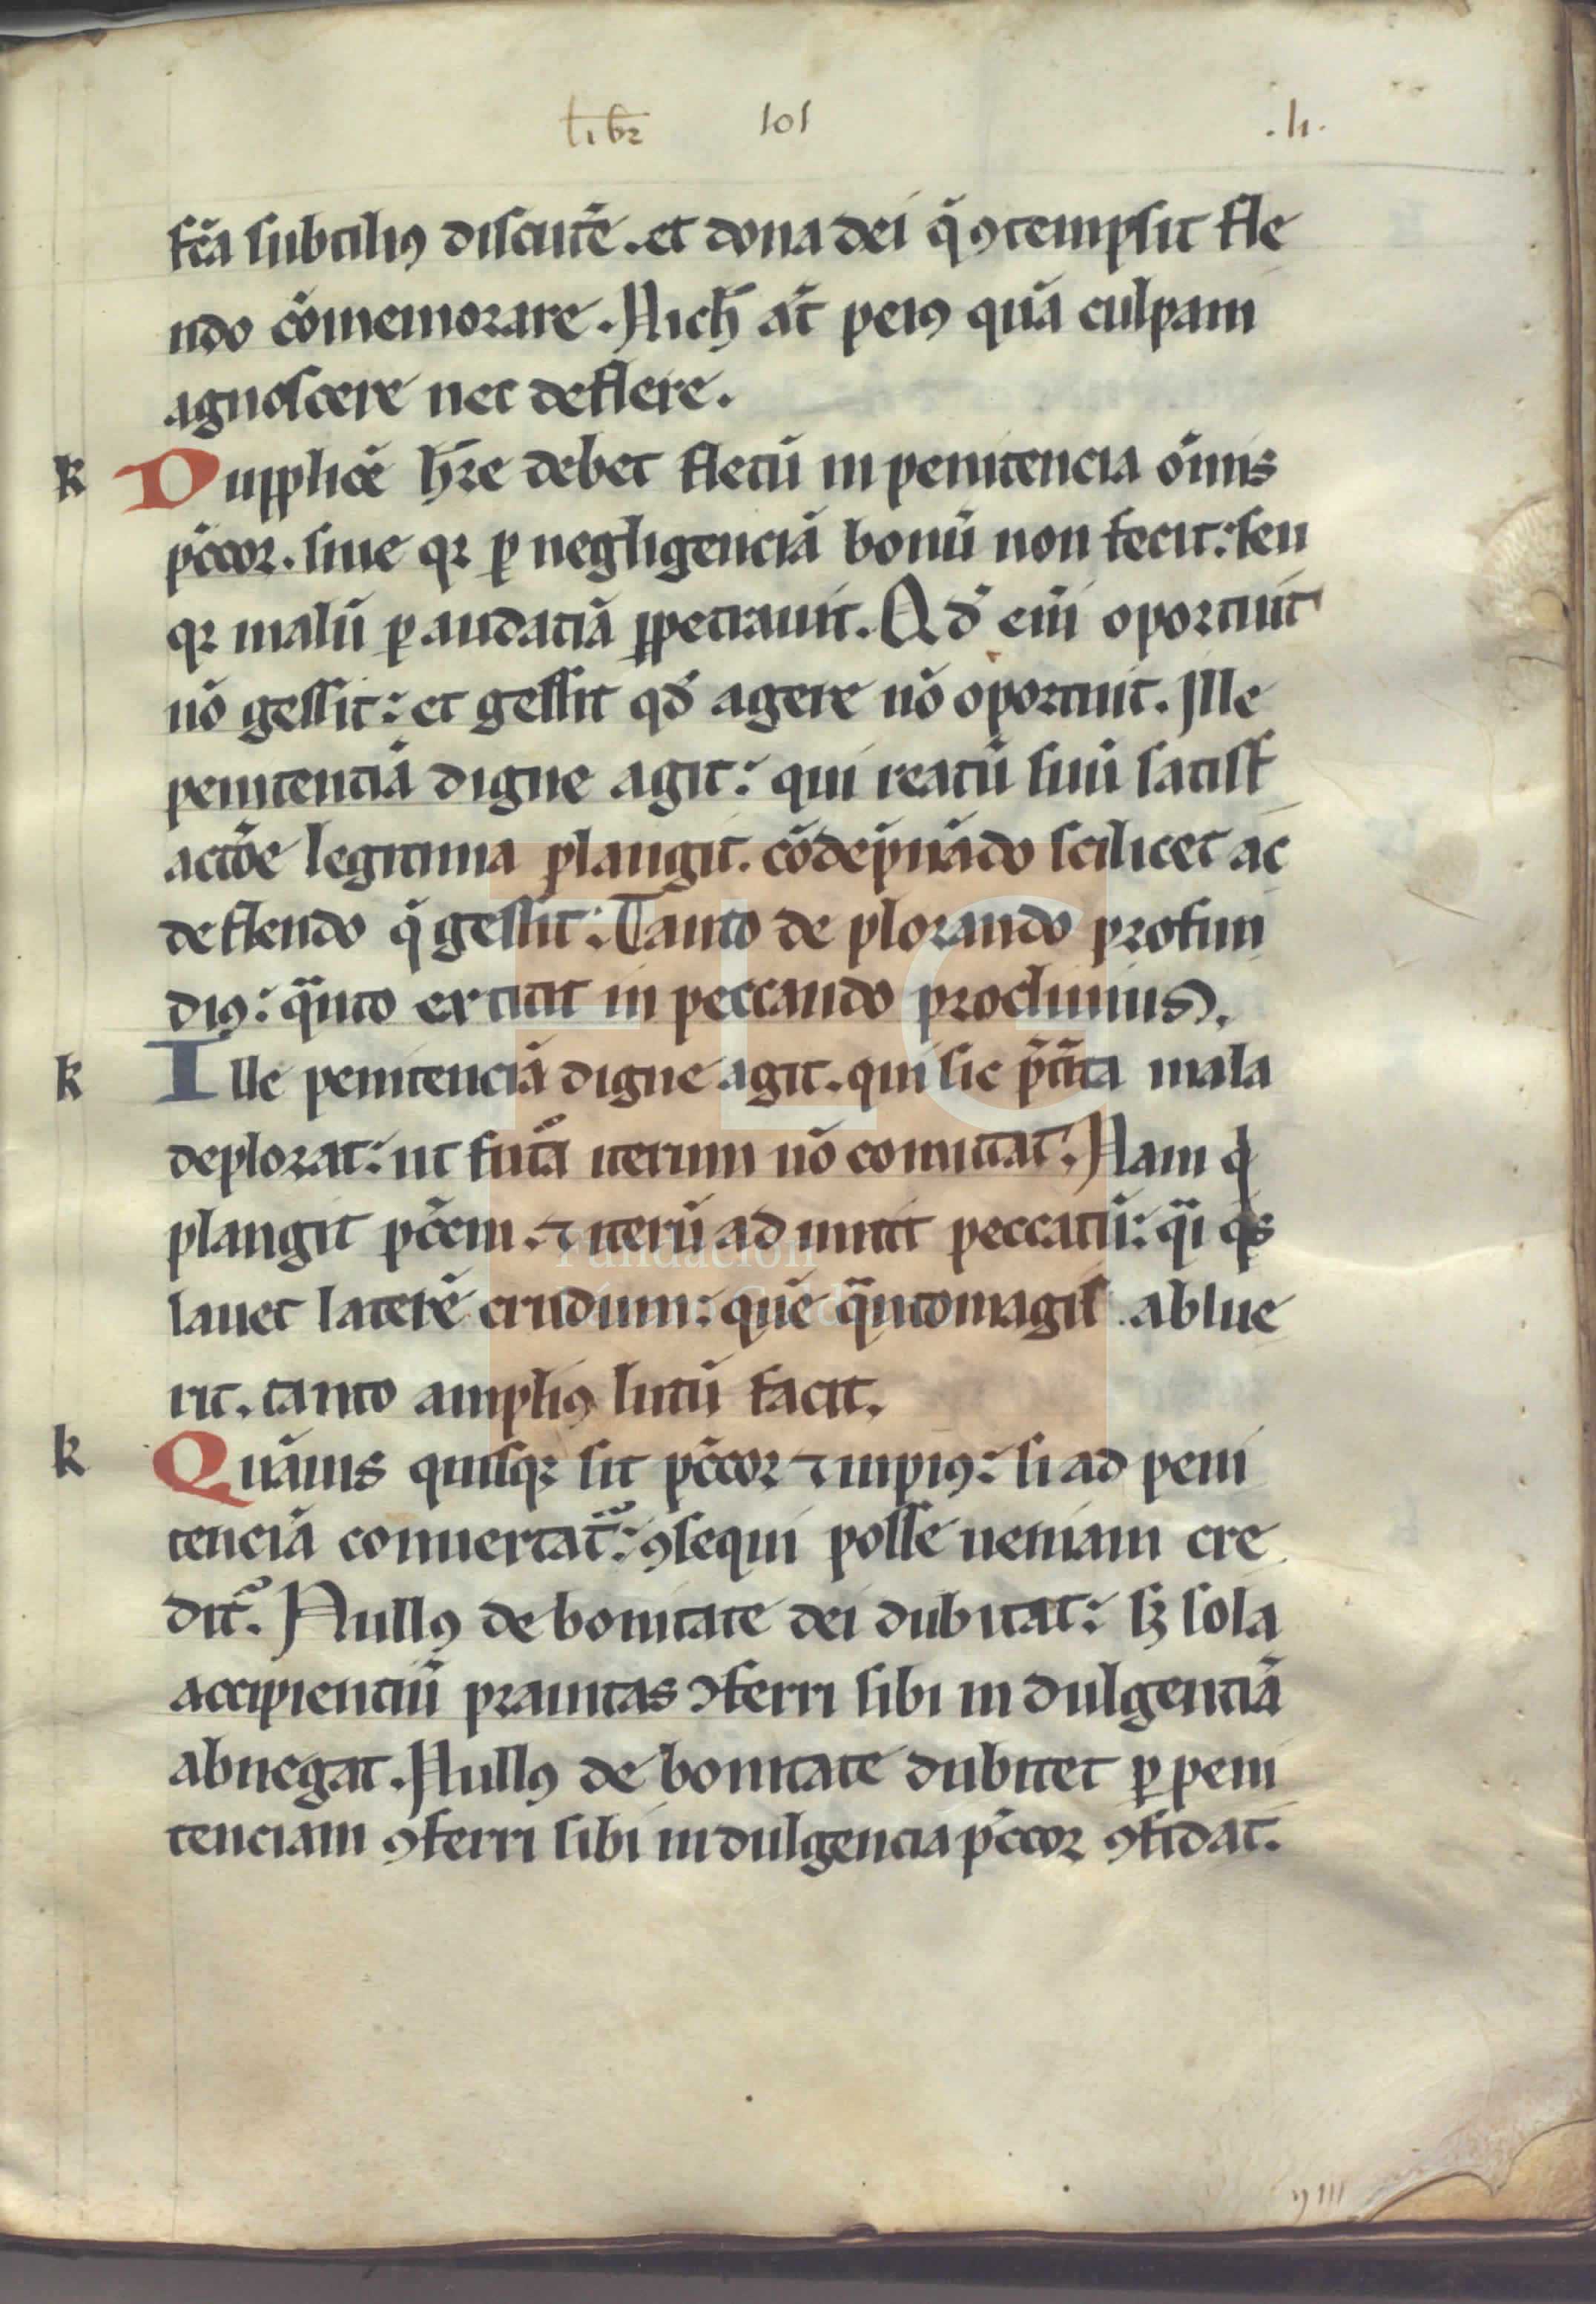 libꝛ 101 .h.
fc̄a subtiliꝰ discutē. et dona dei q̄ ꝯtempsit fle
ndo cōmemorare. Nich̄ aūt peiꝰ quā culpam
agnoscere nec deflere.
k Dupplicē h̄re debet fletū in penitencia om̄is
pc̄cor. siue qꝛ ꝑ negligenciā bonū non fecit: seu
qꝛ malū ꝑ audatiā ꝑpetrauit. Qd̄ eni̅ oportuit
nō gessit: et gessit qd̄ agere nō oportuit. Ille
penitentiā digne agit: qui reatū suū satisf
actōe legitima plangit. cōdēpnādo scilicet ac
deflendo q̄ gessit: Tanto de plorando profun
diꝰ: qᷓnto extitit in peccando procliuius.
k Ille penitenciā digne agit. qui sic p̄t̄ita mala
deplorat: ut fut̄a iterum nō comittat. Nam q
plangit pc̄cm. ⁊ iterū ad mittit peccatū: qᷓi qͥs
lauet laterē crudum: quē qᷓntomagis ablue
rit. tanto ampliꝰ lutū facit.
k Quāuis quisqꝛ sit pc̄cor ⁊ inpiꝰ: si ad peni
tenciā conuertat᷑: ꝯsequi posse ueniam cre
dit᷑. Nullꝰ de bonitate dei dubitat: sꝫ sola
accipientiū prauitas ꝯferri sibi in dulgentiā
abnegat. Nullꝰ de bonitate dubitet ꝑ peni
tenciam ꝯferri sibi indulgencia pc̄cor ꝯfidat.
Fundación